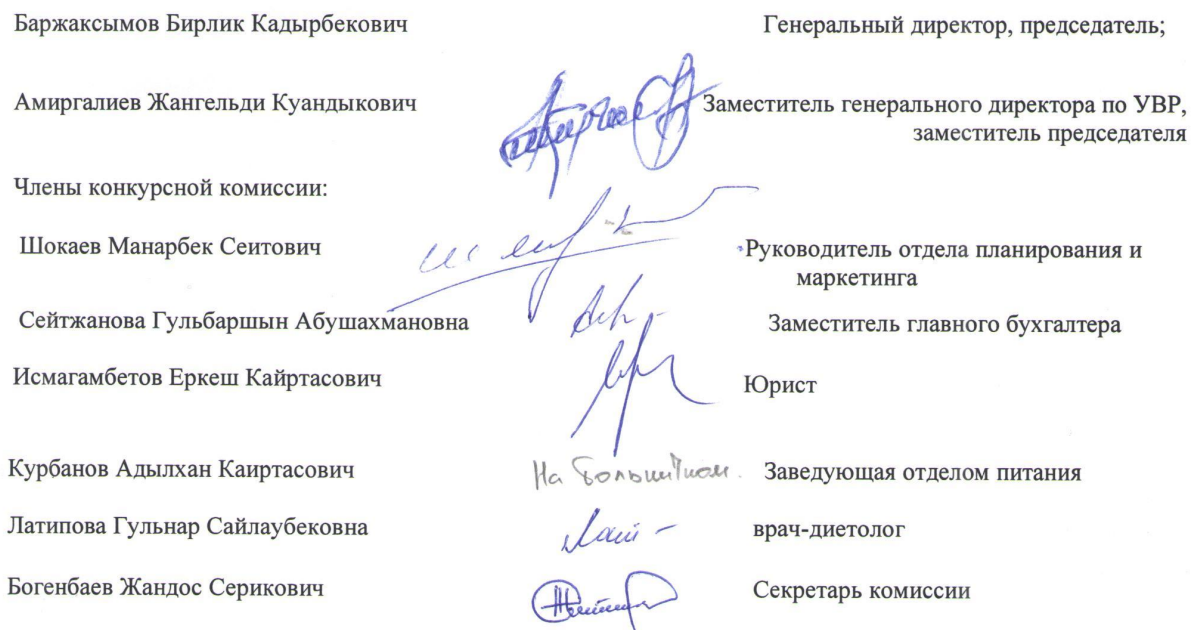 Баржаксымов Бирлик Кадырбекович Генеральный директор, председатель;
Амиргалиев Жангельди Куандыкович Заместитель генерального директора по УВР,
заместитель председателя
Члены конкурсной комиссии:
Шокаев Манарбек Сеитович Руководитель отдела планирования и
маркетинга
Сейтжанова Гульбаршын Абушахмановна Заместитель главного бухгалтера
Исмагамбетов Еркеш Кайртасович Юрист
Курбанов Адылхан Каиртасович На больничном. Заведующая отделом питания
Латипова Гульнар Сайлаубековна врач-диетолог
Богенбаев Жандос Серикович Секретарь комиссии